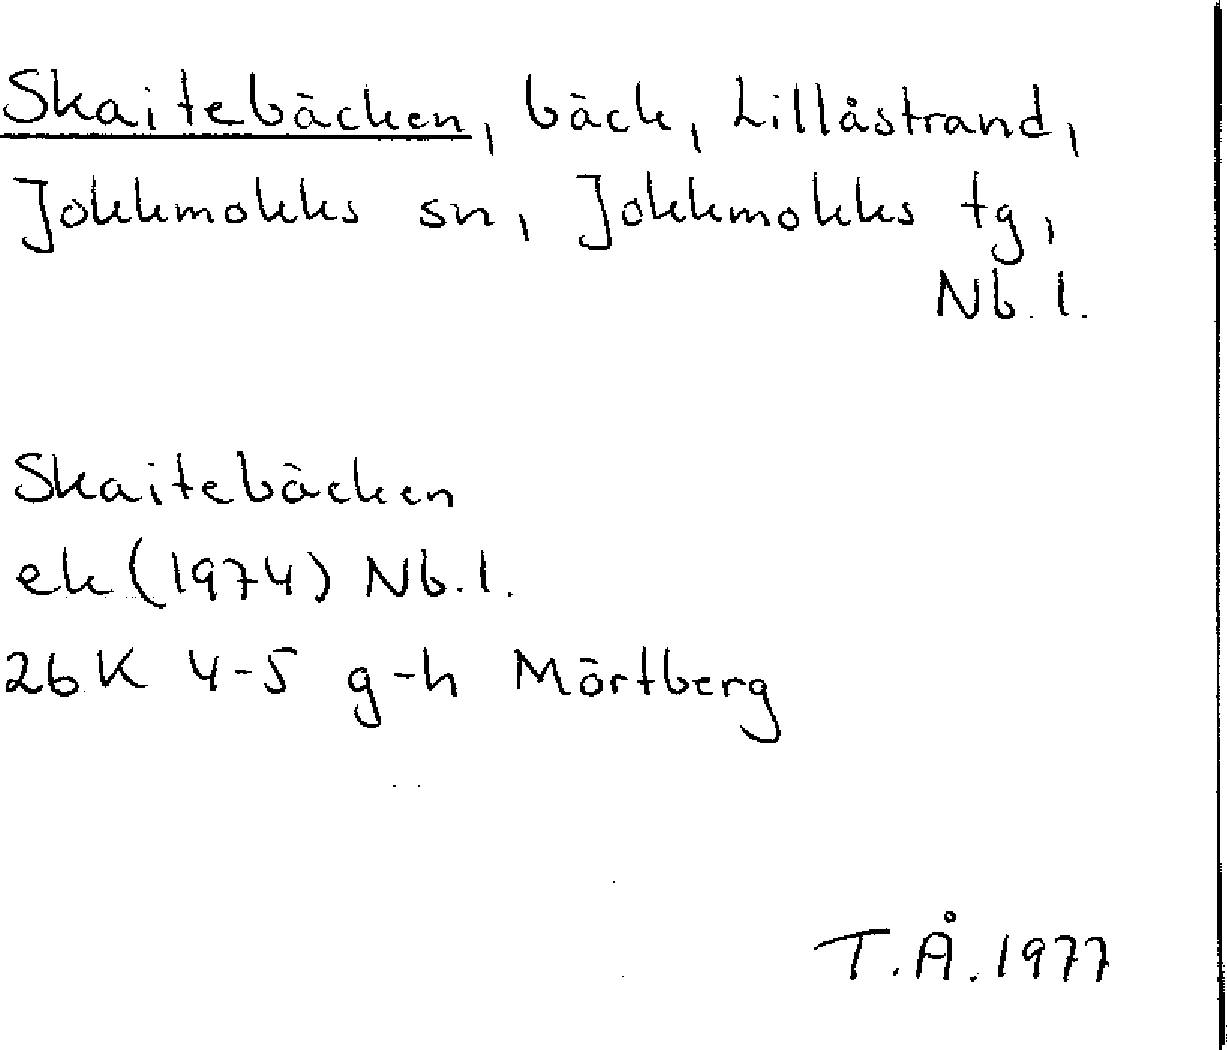 Skaitebäcken, bäck, Lillåstrand,
Jokkmokks sn, Jokkmokks tg,
Nb. l.
Skaitebäcken
ek (1974) Nb. l.
26 K 4-5 g-h Mörtberg
T. Å. 1977